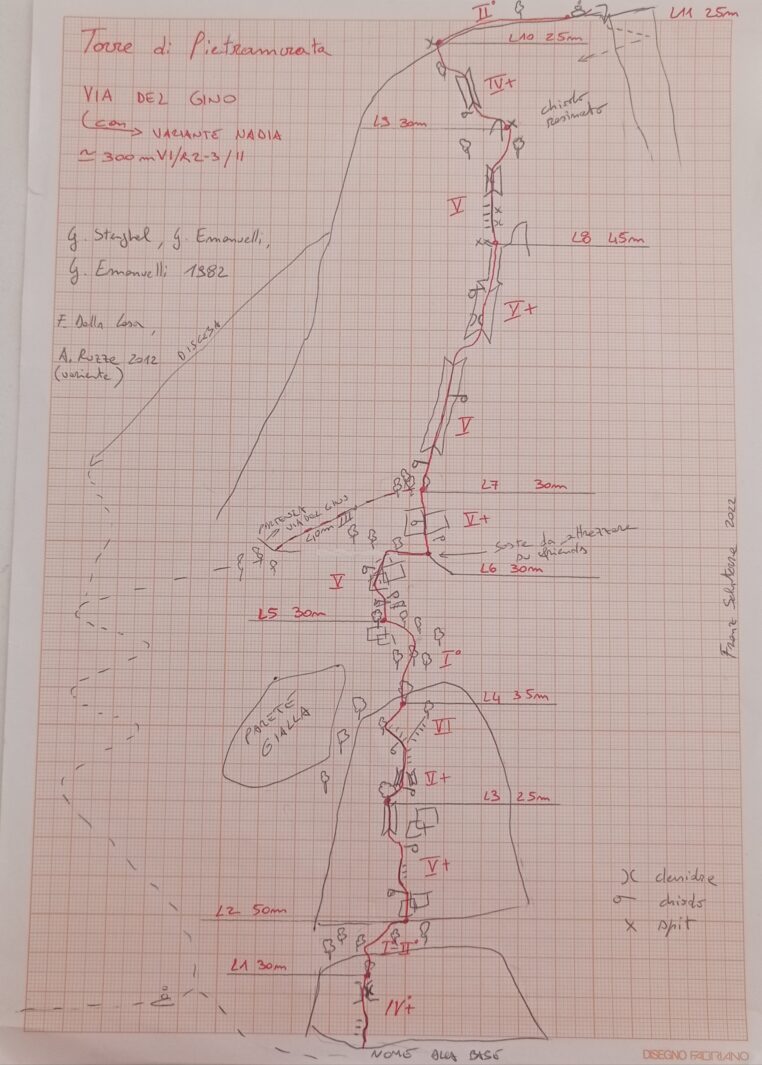 Torre di Pietramurata
VIA DEL GINO
(con → VARIANTE NADIA
≃ 300m VI/R2-3/II
G. Stenghel, G. Emanuelli,
G. Emanuelli 1982
F. Dalla
A. Rozze 2012
(variante)
DISCESA
II°
L11 25m
L10 25m
IV+
chiodo
resinato
L9 30m
V
L8 45m
V+
V
L7 30m
PARTENZA
VIA DEL GINO
40m III
V+
soste da attrezzare
su friends
L6 30m
V
L5 30m
I°
L4 35m
PARETE
GIALLA
VI
V+
L3 25m
V+
L2 50m
I°-II°
L1 30m
IV+
clessidre
chiodo
x spit
NOME ALLA BASE
2022
DISEGNO FABRIANO